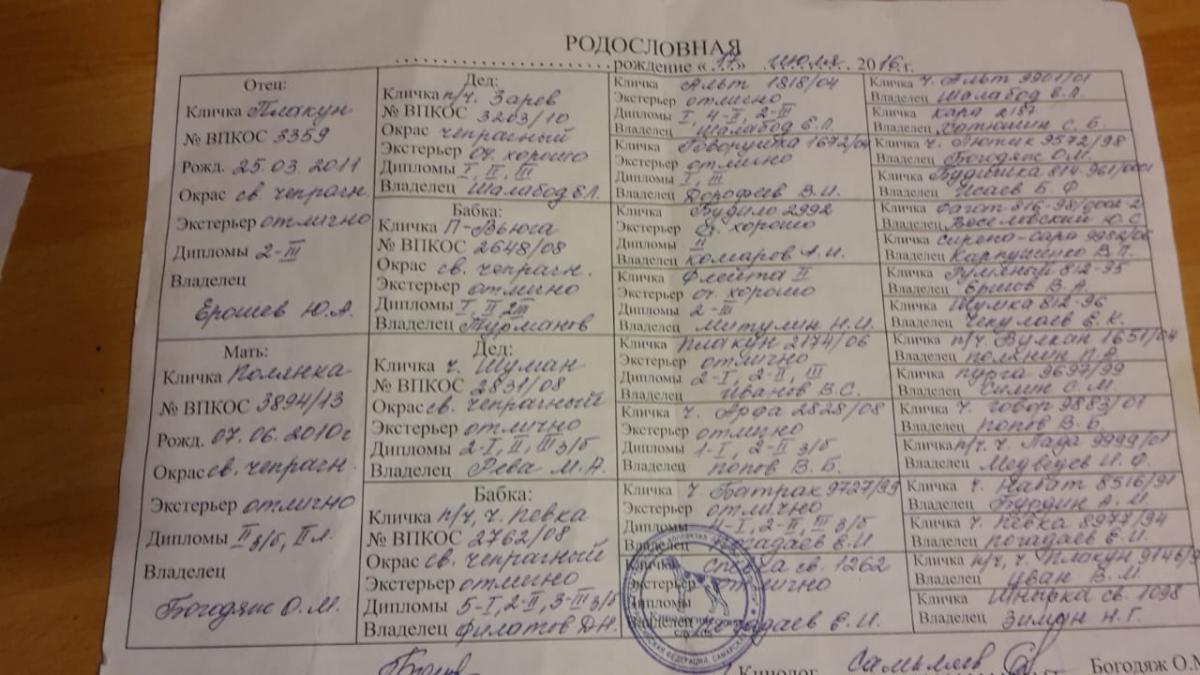 РОДОСЛОВНАЯ
рождение « 17 » июля 2016 г.
Отец:
Кличка Плакун
№ ВПКОС 3359
Рожд. 25.03.2011
Окрас св. чепрагн.
Экстерьер отлично
Дипломы 2-III
Владелец
Ерошев Ю.А.
Дед:
Кличка п/ч. Зарев
№ ВПКОС 3203/10
Окрас чепрачный
Экстерьер оч. хорошо
Дипломы I, II, III
Владелец Шалабод Е.Л.
Бабка:
Кличка П-Вьюга
№ ВПКОС 2648/08
Окрас св. чепрагн.
Экстерьер отлично
Дипломы I, II, 2III
Владелец Турманов
Кличка Альт 1818/04
Экстерьер отлично
Дипломы I, 4-II, 2-III
Владелец Шалабод Е.Л.
Кличка Говорушка 1672/04
Экстерьер отлично
Дипломы I, III
Владелец Дорофеев В.И.
Кличка Будило 2992
Экстерьер оч. хорошо
Дипломы II
Владелец Комаров А.И.
Кличка Флейта II
Экстерьер оч. хорошо
Дипломы 2-III
Владелец Митулин Н.И.
Кличка Ч. Альт 9901/01
Владелец Шалабод Е.Л.
Кличка Кара 2187
Владелец Хатюшин С. Б.
Кличка Ч. Лютик 9572/98
Владелец Богодяж О.М.
Кличка Будишка 814-961/0001
Владелец Исаев Б. Ф
Кличка Фагот 816-98/0002-2
Владелец Веселовский Ю.С.
Кличка Сирена-Сара 9982/06
Владелец Карпушенко В.П.
Кличка Румяный 812-95
Владелец Ершов В.А.
Кличка Шумка 812-96
Владелец Чекулаев Е.К.
Мать:
Кличка Полянка
№ ВПКОС 3894/13
Рожд. 07.06.2010г
Окрас св. чепрагн.
Экстерьер отлично
Дипломы II з/б, II л.
Владелец
Богодяж О.М.
Дед:
Кличка ч. Шуман
№ ВПКОС 2831/08
Окрас св. чепрачный
Экстерьер отлично
Дипломы 2-I, II, III з/б
Владелец Рева М.А.
Бабка:
Кличка п/ч, ч. Певка
№ ВПКОС 2762/08
Окрас св. чепрачный
Экстерьер отлично
Дипломы 5-I, 2-II, 3-III з/б
Владелец Филатов Д.Н.
Кличка Плакун 2174/06
Экстерьер отлично
Дипломы 2-I, 2-II, III
Владелец Иванов В.С.
Кличка ч. Арда 2828/08
Экстерьер отлично
Дипломы 1-I, 2-II з/б
Владелец Попов В.Б.
Кличка Ч Батрак 9727/99
Экстерьер отлично
Дипломы 4-I, 2-II, III з/б
Владелец Рогадаев Е.И.
Кличка св. 1262
Экстерьер отлично
Дипломы
Владелец Рогадаев Е.И.
Кличка п/ч. Вулкан 1651/04
Владелец Полянин П.А.
Кличка Пурга 9697/99
Владелец Силин С.М.
Кличка ч. Говор 9883/01
Владелец Попов В.Б
Кличка п/ч. ч. Лада 9999/01
Владелец Медведев И.Ф.
Кличка ч. Набат 8516/91
Владелец Бугодин А.М.
Кличка ч. Певка 8977/94
Владелец Рогадаев Е.И.
Кличка п/ч, ч. Плакун 9146/
Владелец Иван В.М.
Кличка св. 1098
Владелец Зимин Н.Г.
Кинолог Богодяж О.М